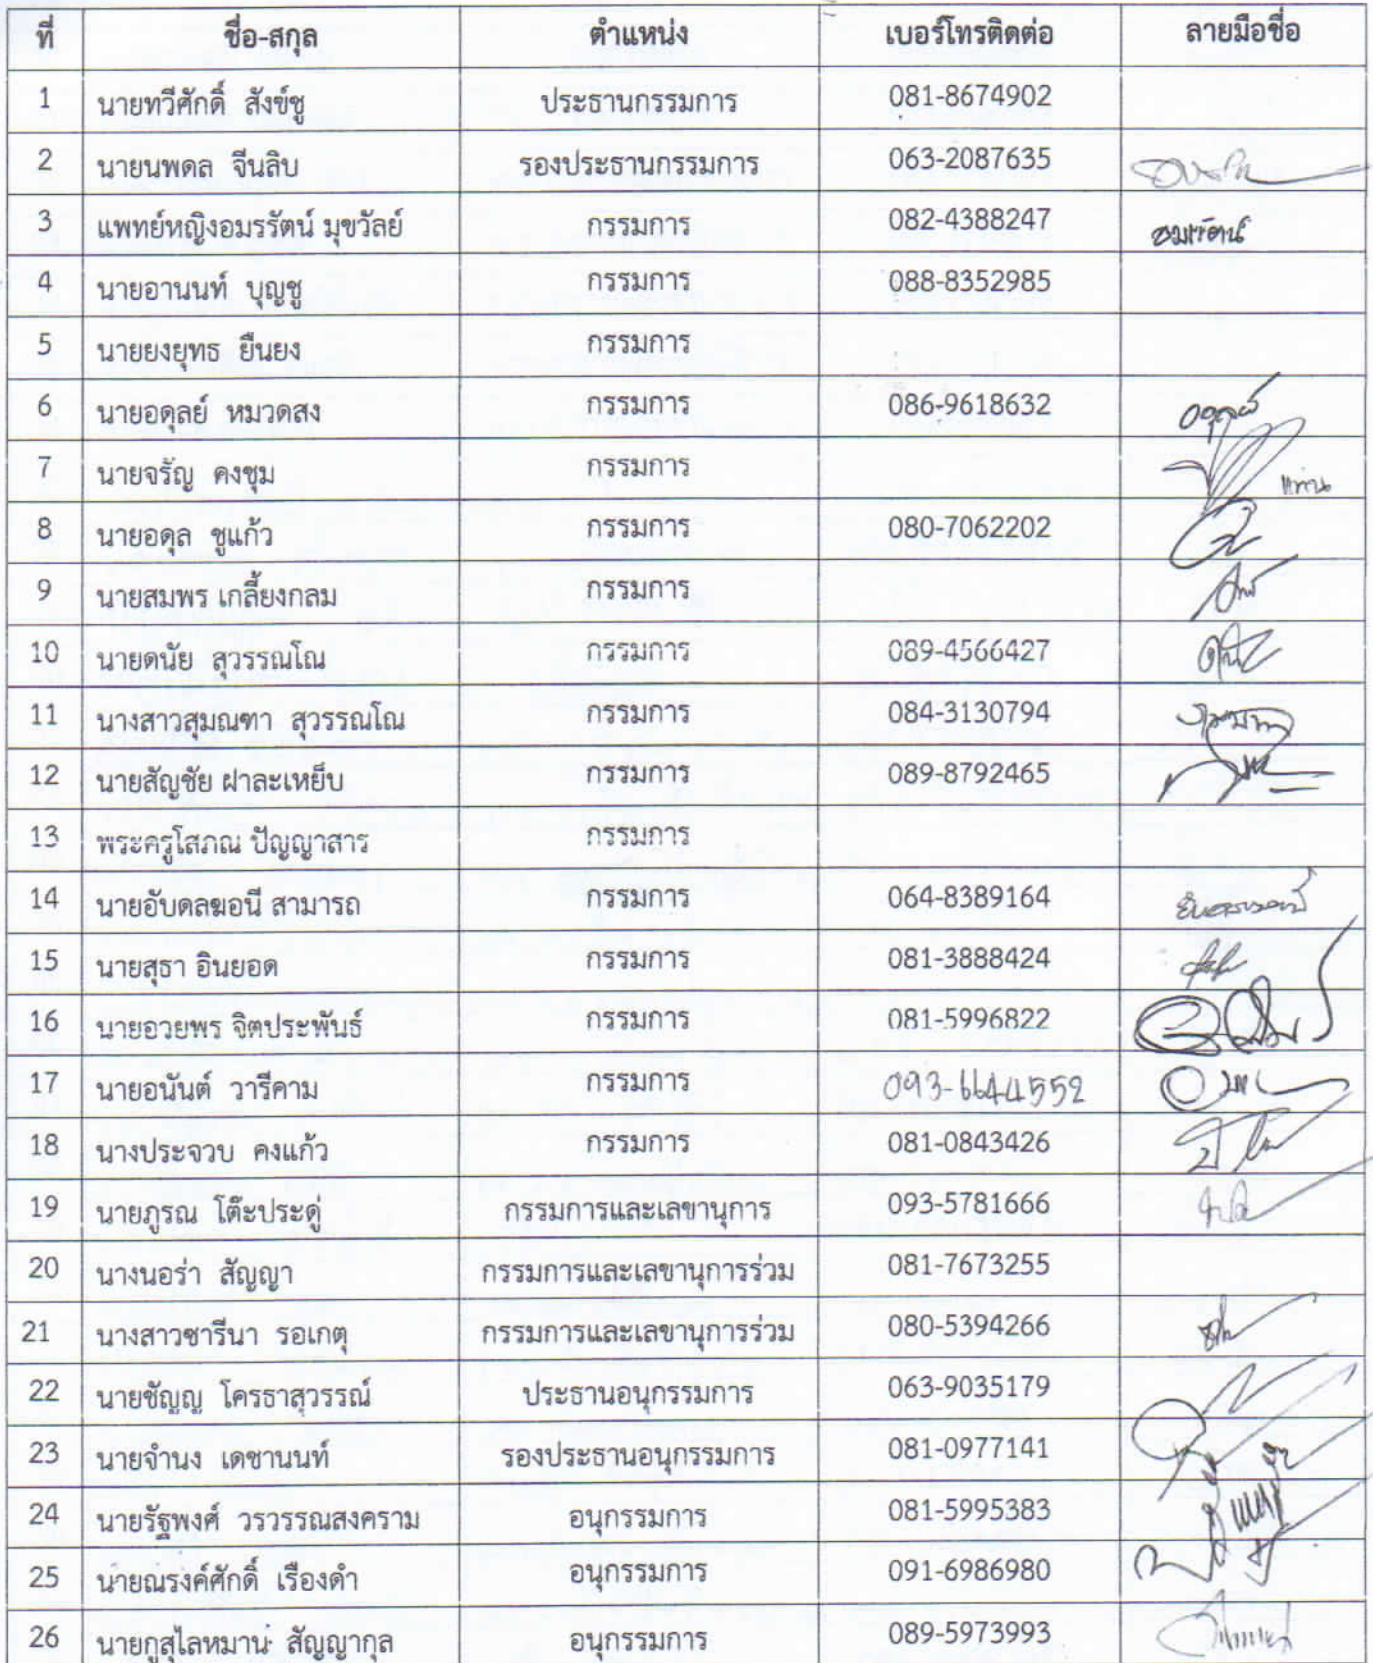 ที่ ชื่อ-สกุล ตำแหน่ง เบอร์โทรติดต่อ ลายมือชื่อ
1 นายทวีศักดิ์ สังข์ชู ประธานกรรมการ 081-8674902
2 นายนพดล จีนลิบ รองประธานกรรมการ 063-2087635
3 แพทย์หญิงอมรรัตน์ มุขวัลย์ กรรมการ 082-4388247 อมรรัตน์
4 นายอานนท์ บุญชู กรรมการ 088-8352985
5 นายยงยุทธ ยืนยง กรรมการ
6 นายอดุลย์ หมวดสง กรรมการ 086-9618632 อดุลย์
7 นายจรัญ คงชุม กรรมการ แทน
8 นายอดุล ชูแก้ว กรรมการ 080-7062202
9 นายสมพร เกลี้ยงกลม กรรมการ
10 นายดนัย สุวรรณโณ กรรมการ 089-4566427
11 นางสาวสุมณฑา สุวรรณโณ กรรมการ 084-3130794
12 นายสัญชัย ฝาละเหย็บ กรรมการ 089-8792465
13 พระครูโสภณ ปัญญาสาร กรรมการ
14 นายอับดลฆอนี สามารถ กรรมการ 064-8389164
15 นายสุธา อินยอด กรรมการ 081-3888424
16 นายอวยพร จิตประพันธ์ กรรมการ 081-5996822
17 นายอนันต์ วารีคาม กรรมการ 093-6644552
18 นางประจวบ คงแก้ว กรรมการ 081-0843426
19 นายภูรณ โต๊ะประดู่ กรรมการและเลขานุการ 093-5781666
20 นางนอร่า สัญญา กรรมการและเลขานุการร่วม 081-7673255
21 นางสาวซารีนา รอเกตุ กรรมการและเลขานุการร่วม 080-5394266
22 นายชัญญ โครธาสุวรรณ์ ประธานอนุกรรมการ 063-9035179
23 นายจำนง เดชานนท์ รองประธานอนุกรรมการ 081-0977141
24 นายรัฐพงศ์ วรวรรณสงคราม อนุกรรมการ 081-5995383
25 นายณรงค์ศักดิ์ เรืองดำ อนุกรรมการ 091-6986980
26 นายกูสุไลหมาน สัญญากุล อนุกรรมการ 089-5973993